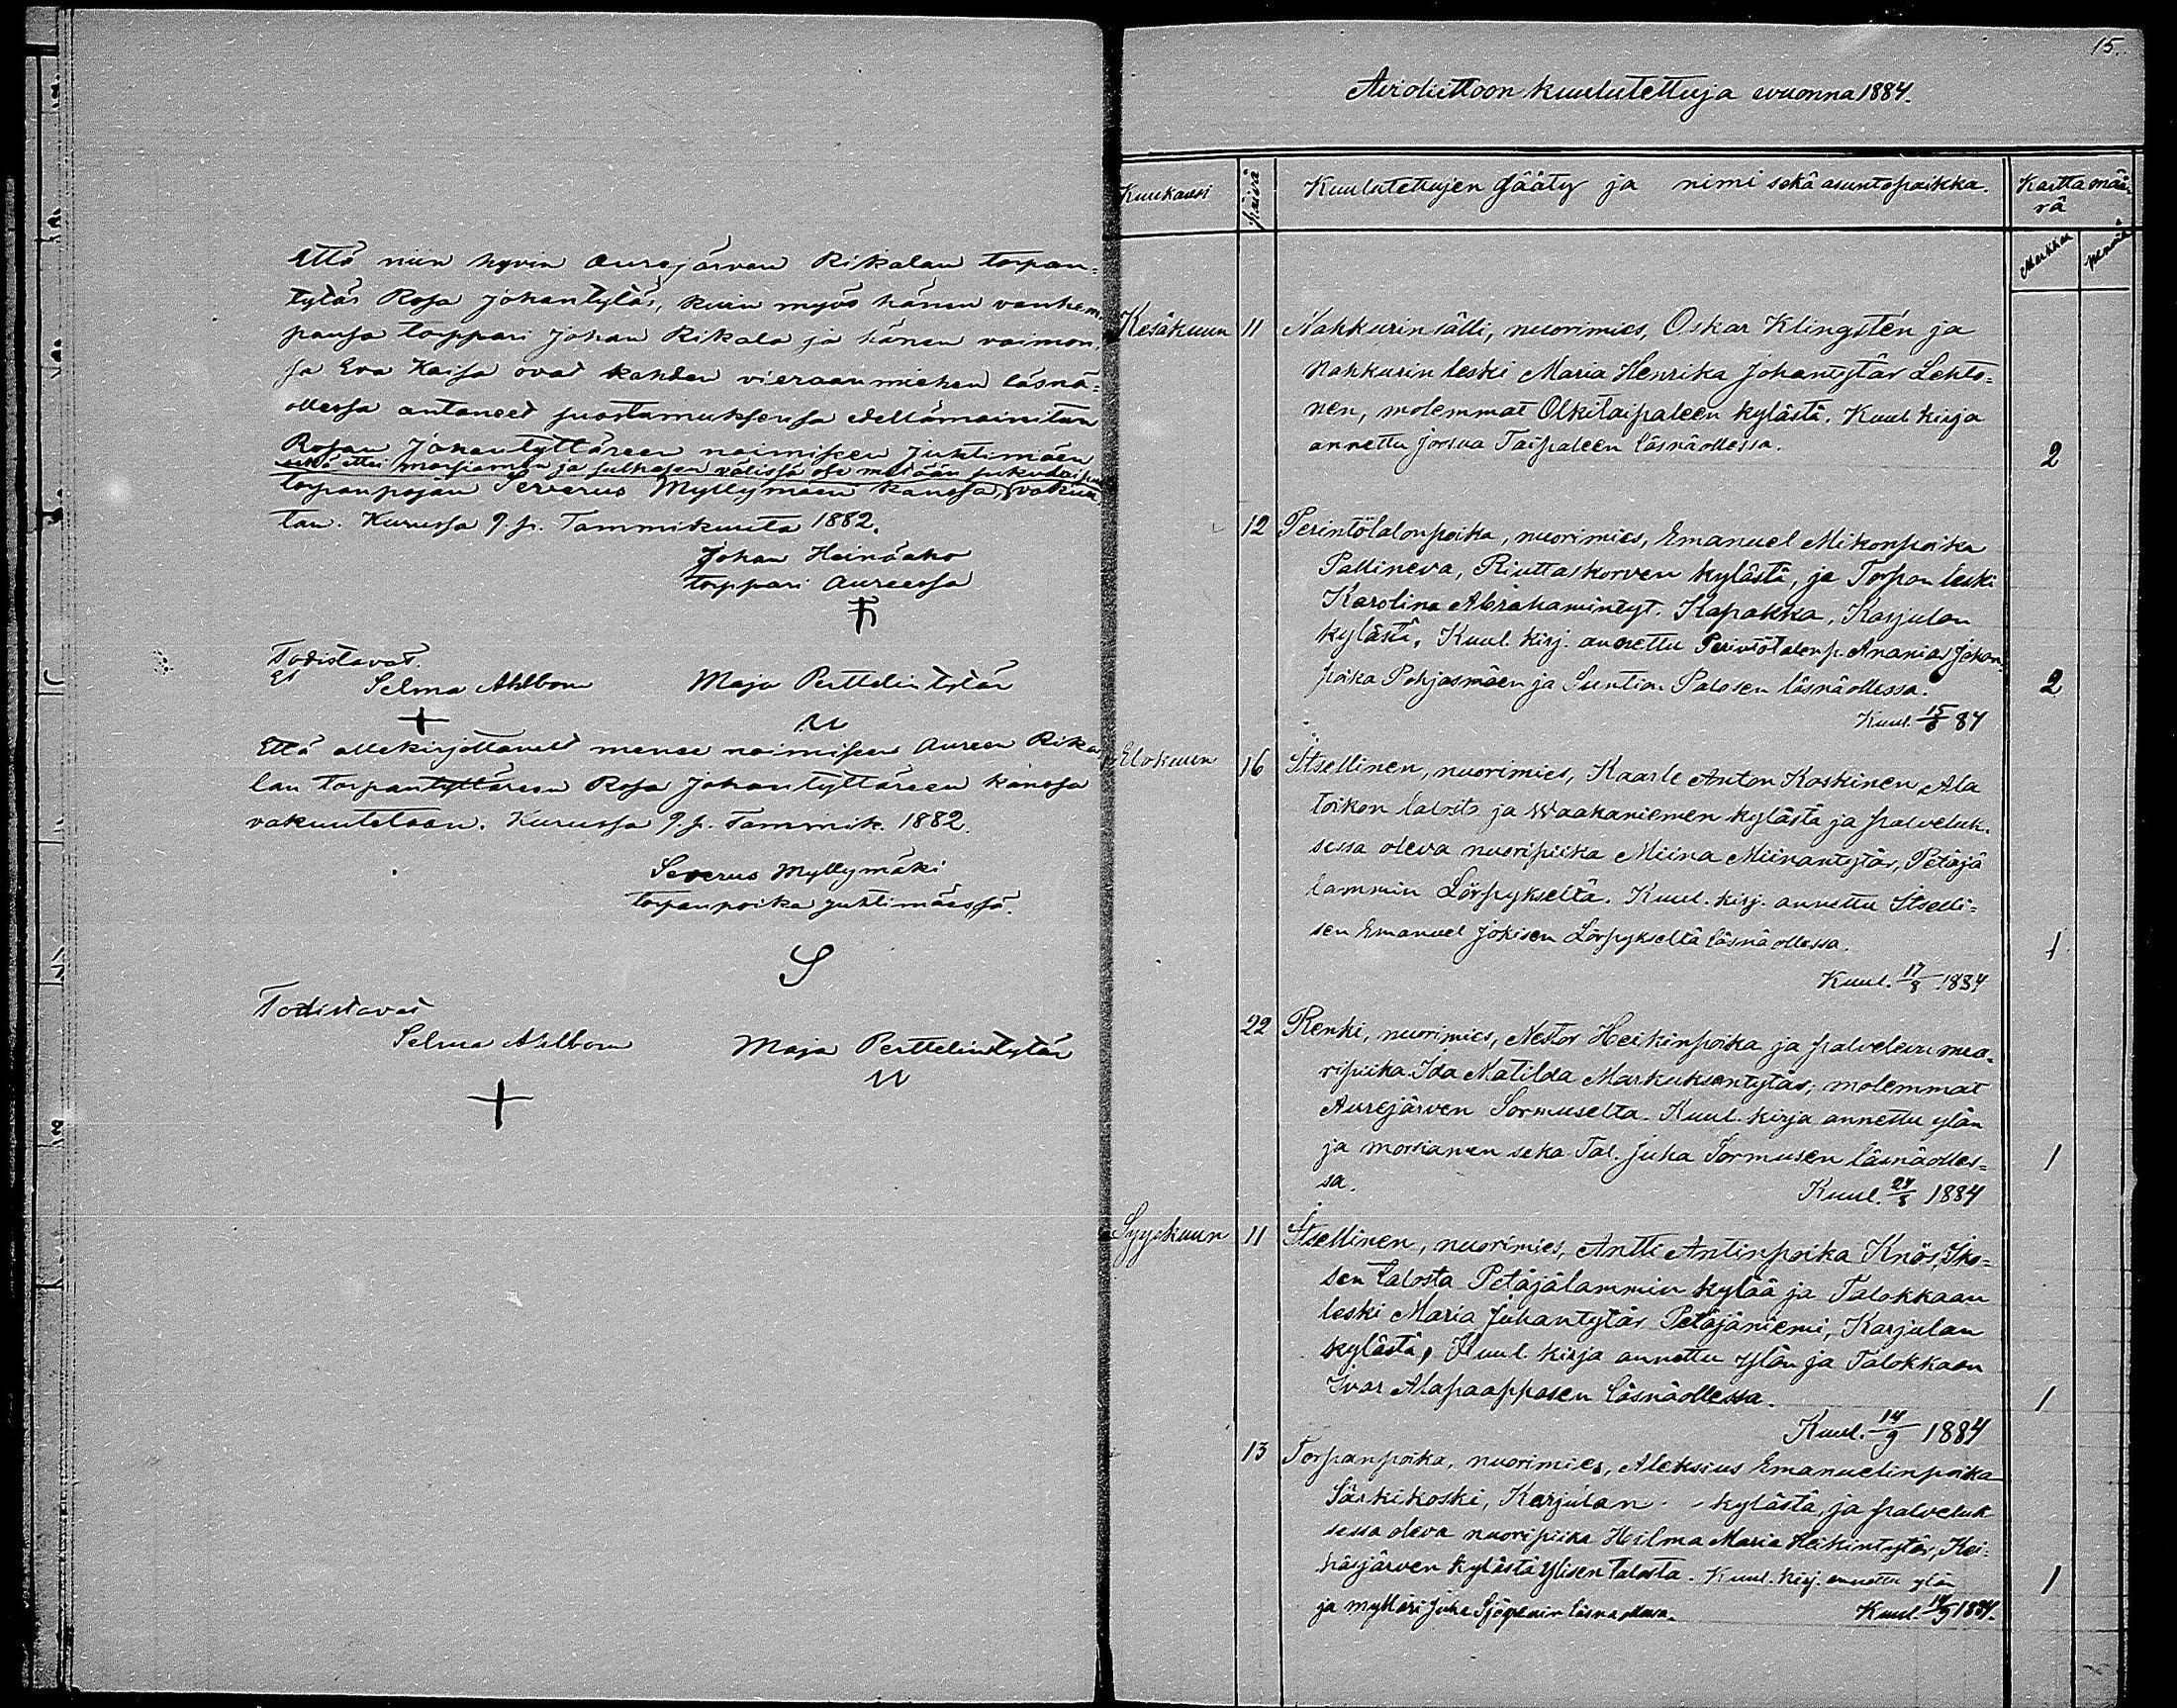 Että niin hyvin Aurejärven Rikalan torpan-
tytär Rosa Johantytär, kuin myös hänen vanhem-
pansa torppari Johan Rikala ja hänen vaimon-
sa Eva Kaisa ovat kahden vieraan miehen läsnä-
ollessa antaneet suostumuksensa edellämainitun
Rosan Johantyttäreen naimiseen Juhtimäen
sekä ettei morsiamen ja sulhasen välissä ole mitään
torpanpojan Severus Myllymäen kanssa, vakuu-
tan. Kurussa 9. p. Tammikuuta 1882.
Johan Heinäaho
torppari Aureessa
Todistavat.
Selma Ahlbom Maja Perttelintytär
Että allekirjottanut menee naimiseen Aureen Rika
lan torpantyttäreen Rosa Johantyttäreen kanssa
vakuutetaan. Kurussa 9. p. Tammik. 1882.
Severus Myllymäki
torpanpoika Juhtimäessä.
S
Todistavat
Selma Ahlbom Maja Perttelintytär
15.
Avioliittoon kuulutettuja wuonna 1884.
Kuukausi päivä Kuulutettujen sääty ja nimi sekä asuntopaikka. Raittamää-
rä
Markkaa penniä
Kesäkuun 11 Nahkurin sälli, nuorimies, Oskar Klingstén ja
Nahkurin leski Maria Henrika Johantytär Lehto-
nen, molemmat Olkitaipaleen kylästä. Kuul. kirja
annettu Joosua Taipaleen läsnäollessa. 2
12 Perintötalonpoika, nuorimies, Emanuel Mikonpoika
Pallineva, Riuttaskorven kylästä, ja Torpan leski
Karolina Abrahamintyt. Kapakka, Karjulan
kylästä, Kuul. kirj. annettu Perintötalonp. Ananias Johan-
poika Pohjasmäen ja Suntion Palosen läsnäollessa. 2
Kuul. 15/6 84
Elokuun 16 Itsellinen, nuorimies, Kaarle Anton Koskinen, Ala
toikon talosta ja Waakaniemen kylästä ja palveluk-
sessa oleva nuoripiika Miina Miinantytär, Petäjä
lammin Lörpykseltä. Kuul. kirj. annettu Itselli-
sen Emanuel Jokisen Lörpykseltä läsnä ollessa. 1
Kuul. 17/8 1884
22 Renki, nuorimies, Nestor Heikinpoika ja palveleva nuo-
ripiika Ida Matilda Markuksentytär, molemmat
Aurejärven Sormuselta. Kuul. kirja annettu ylän
ja morsiamen sekä Tal. Juha Sormusen läsnäolles-
sa. 1
Kuul. 24/8 1884
Syyskuun 11 Itsellinen, nuorimies, Antti Antinpoika Knös, Iko-
sen talosta Petäjälammin kylää ja Talokkaan
leski Maria Juhantytär Petäjäniemi, Karjulan
kylästä, Kuul. kirja annettu ylön ja Talokkaan
Ivar Alapaappasen läsnäollessa. 1
Kuul. 14/9 1884
13 Torpanpoika, nuorimies, Aleksius Emanuelinpoika
Särkikoski, Karjulan kylästä, ja palveluk
sessa oleva nuoripiika Hilma Maria Heikintytär, Kei-
häsjärven kylästä Ylisen talosta. Kuul. kirj. annettu ylön 1
ja mylläri Juha läsnäollessa. Kuul. 14/9 1884.